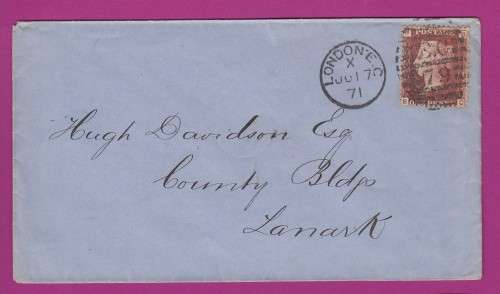 LONDON·E.C
X
OC 17
71
POSTAGE
79
Hugh Davidson Esq
County Bldgs
Lanark